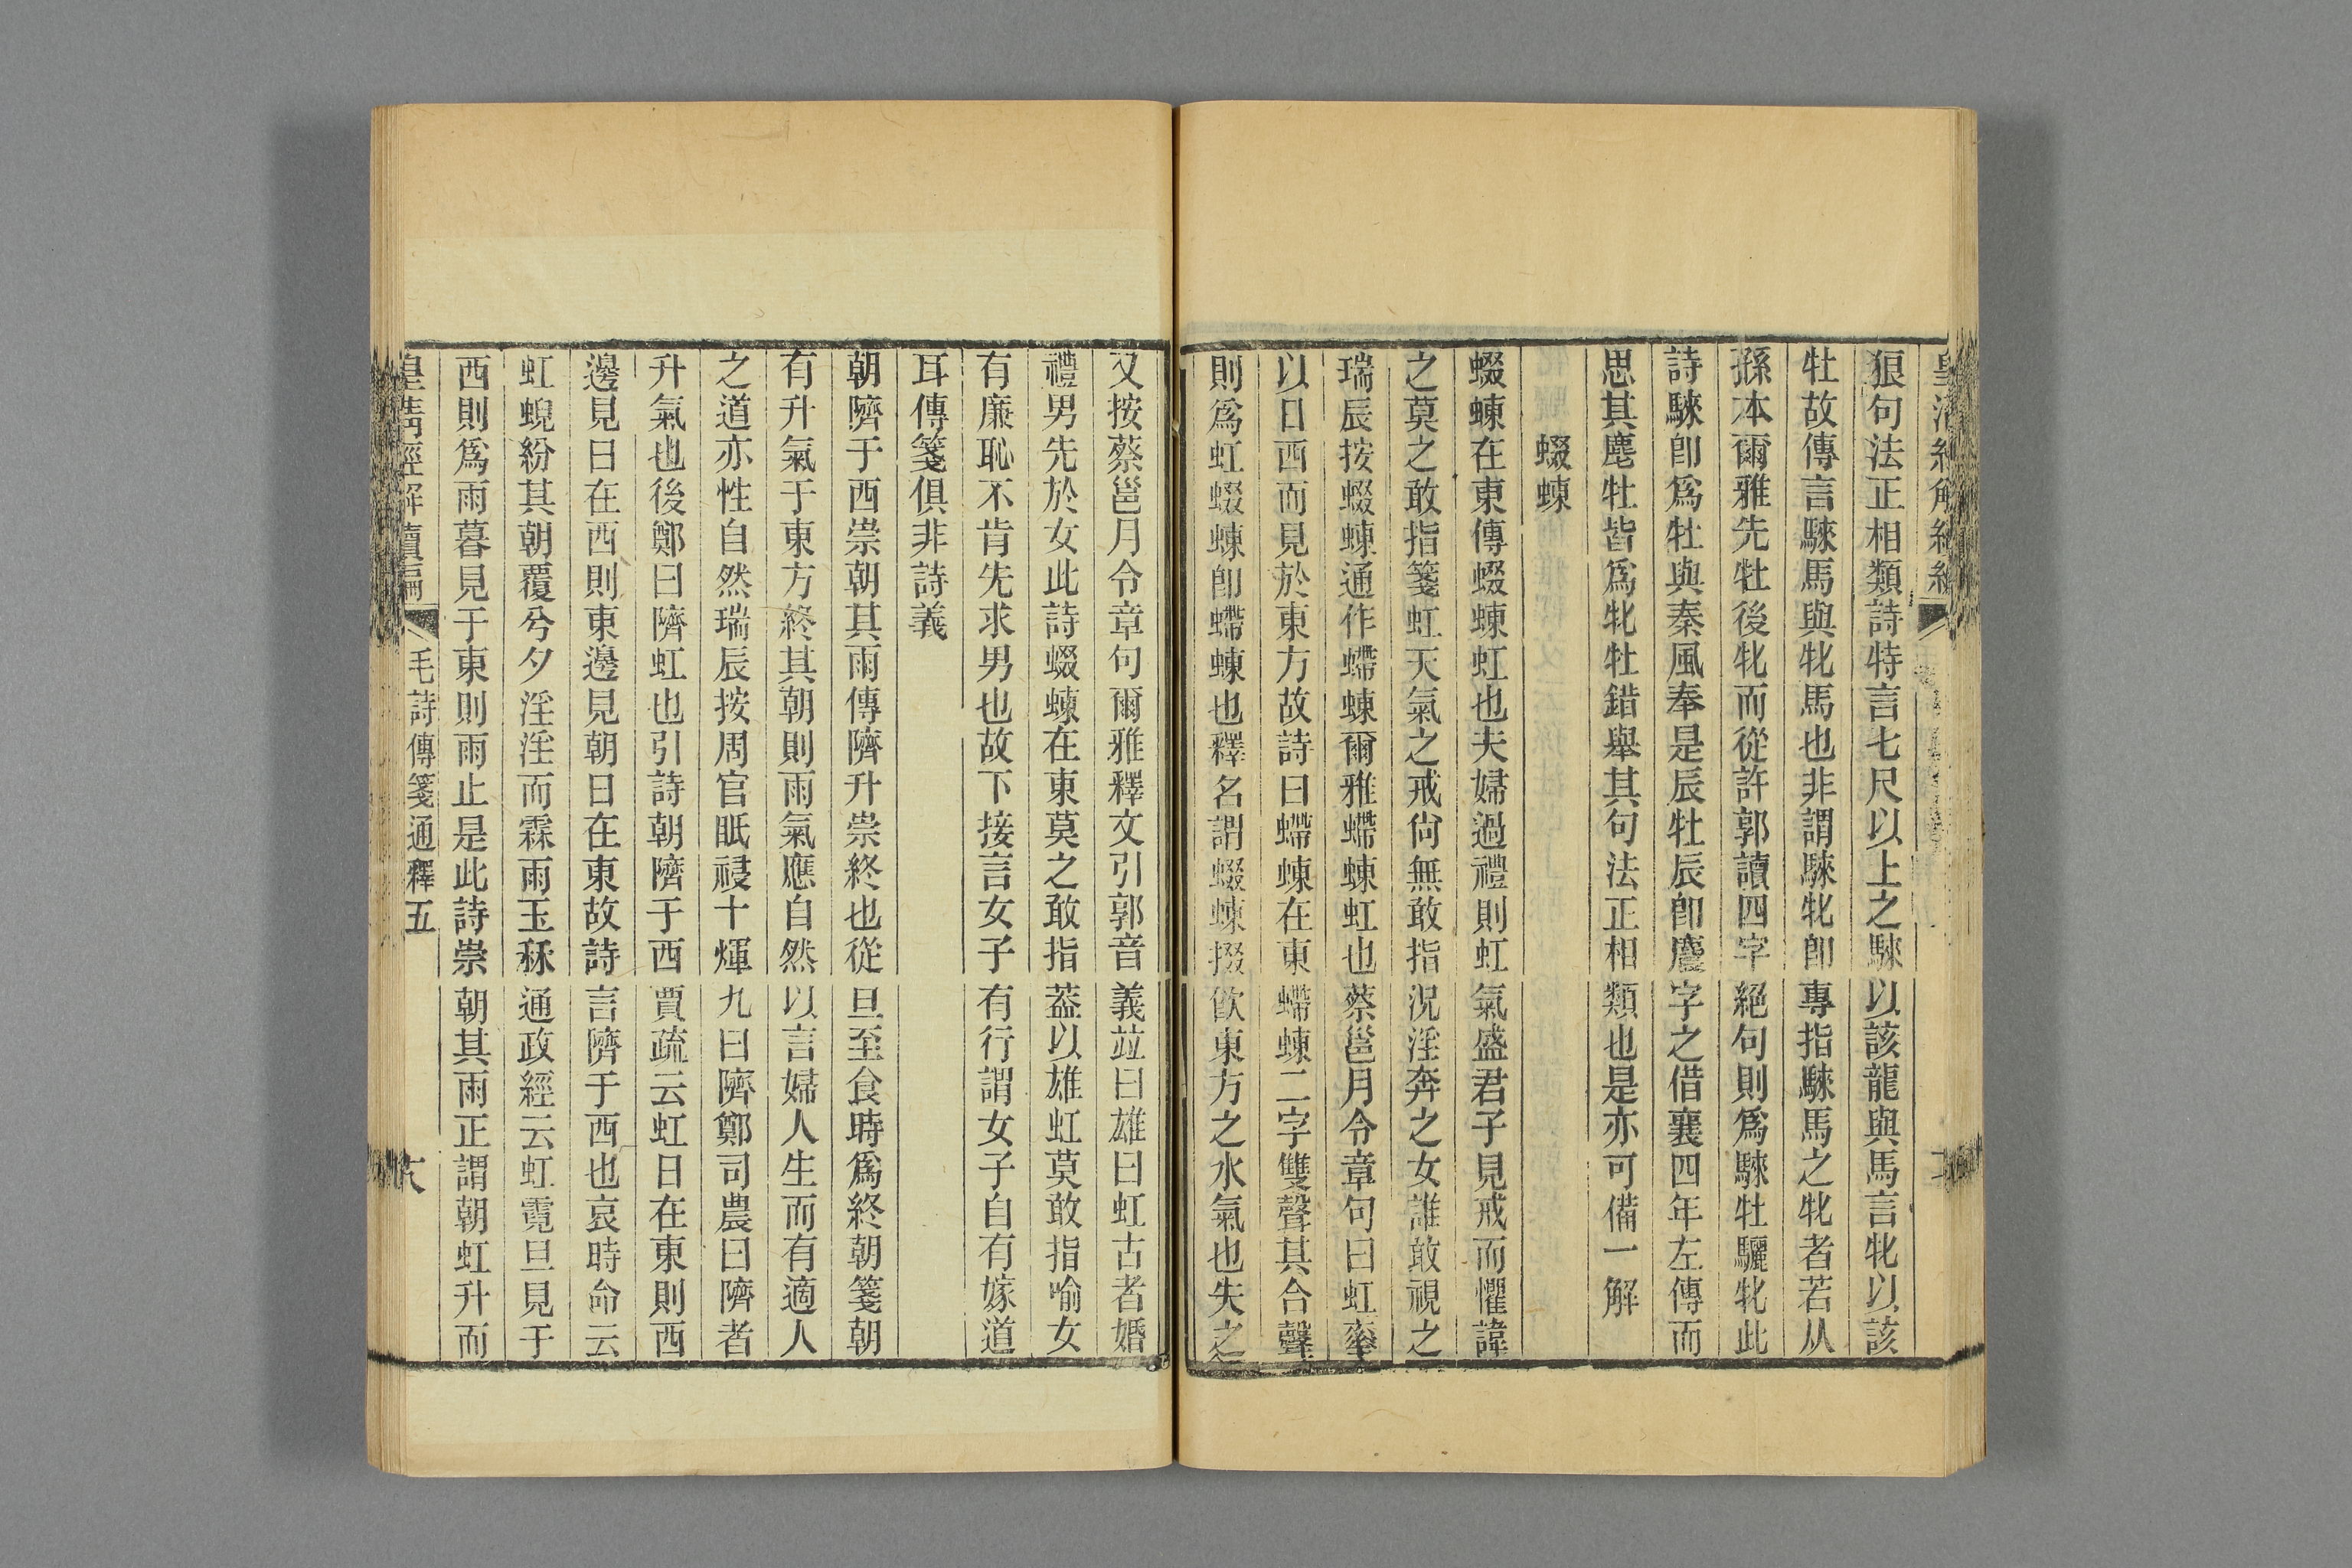 狼句法正相類詩特言七尺以上之騋以該龍與馬言牝以該
牡故傳言騋馬與牝馬也非謂騋牝卽專指騋馬之牝者若从
孫本爾雅先牡後牝而從許郭讀四字絕句則爲騋牡驪牝此
詩騋卽爲牡與秦風奉是辰牡辰卽麎字之借襄四年左傳而
思其麀牡皆爲牝牡錯舉其句法正相類也是亦可備一解
蝃蝀
蝃蝀在東傳蝃蝀虹也夫婦過禮則虹氣盛君子見戒而懼諱
之莫之敢指箋虹天氣之戒尙無敢指況淫奔之女誰敢視之
瑞辰按蝃蝀通作螮蝀爾雅螮蝀虹也蔡邕月令章句曰虹率
以日西而見於東方故詩曰螮蝀在東螮蝀二字雙聲其合聲
則爲虹蝃蝀卽螮蝀也釋名謂蝃蝀掇飮東方之水氣也失之
又按蔡邕月令章句爾雅釋文引郭音義竝曰雄曰虹古者婚
禮男先於女此詩蝃蝀在東莫之敢指葢以雄虹莫敢指喻女
有廉恥不肯先求男也故下接言女子有行謂女子自有嫁道
耳傳箋俱非詩義
朝隮于西崇朝其雨傳隮升崇終也從旦至食時爲終朝箋朝
有升氣于東方終其朝則雨氣應自然以言婦人生而有適人
之道亦性自然瑞辰按周官眡祲十煇九曰隮鄭司農曰隮者
升氣也後鄭曰隮虹也引詩朝隮于西賈疏云虹日在東則西
邊見日在西則東邊見朝日在東故詩言隮于西也哀時命云
虹蜺紛其朝覆兮夕淫淫而霖雨玉稣通政經云虹霓旦見于
西則爲雨暮見于東則雨止是此詩崇朝其雨正謂朝虹升而
皇淸經解續編 毛詩傳箋通釋五